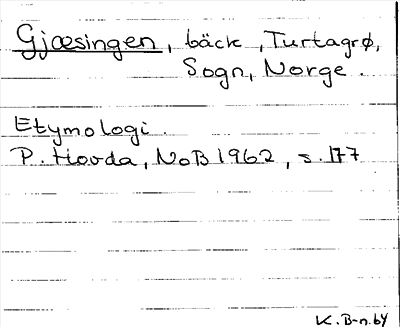 Gjæsingen, bäck, Turtagrø,
Sogn, Norge.
Etymologi.
P. Hovda, NoB 1962, s. 177
K. B-n. 64